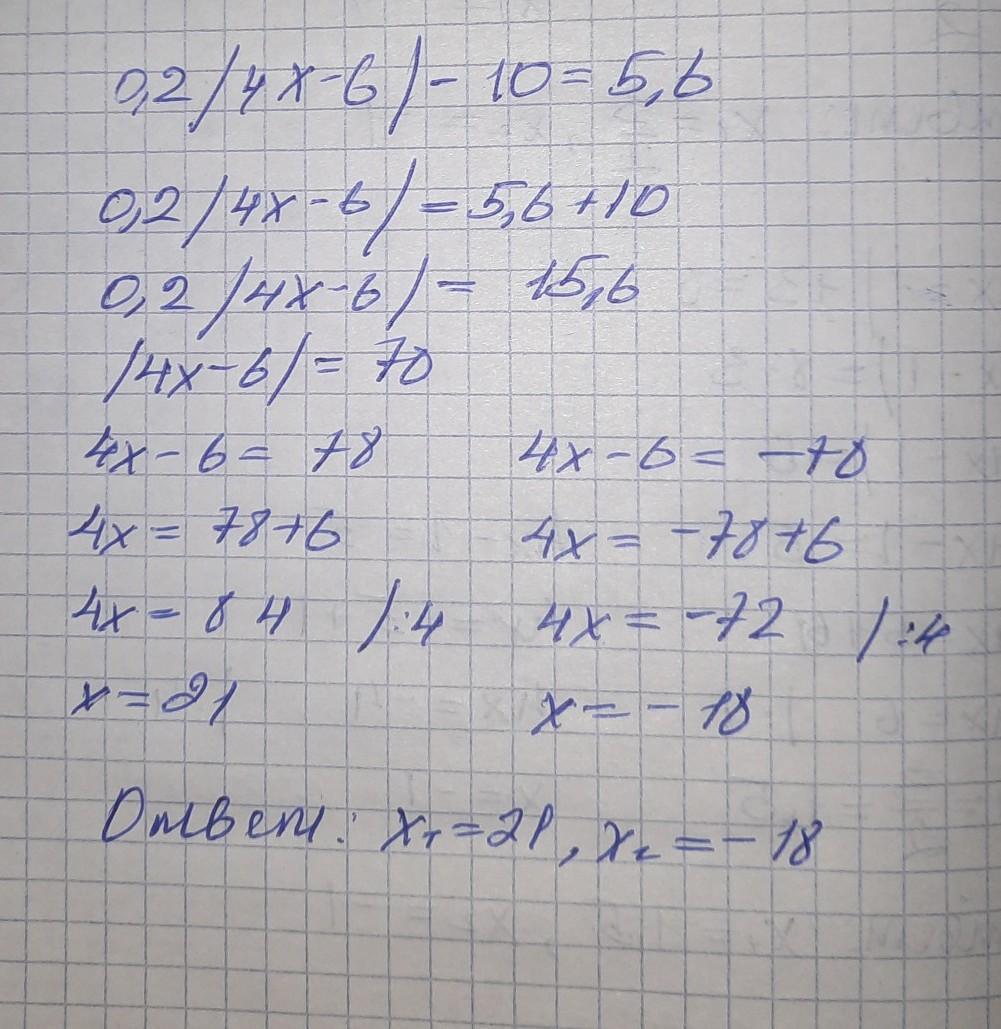 0,2|4x-6|-10=5,6
0,2|4x-6|=5,6+10
0,2|4x-6|= 15,6
|4x-6|= 70
4x-6= 78 4x-6=-78
4x= 78+6 4x=-78+6
4x= 84 /:4 4x=-72 /:4
x=21 x=-18
Ответ: x₁=21, x₂=-18